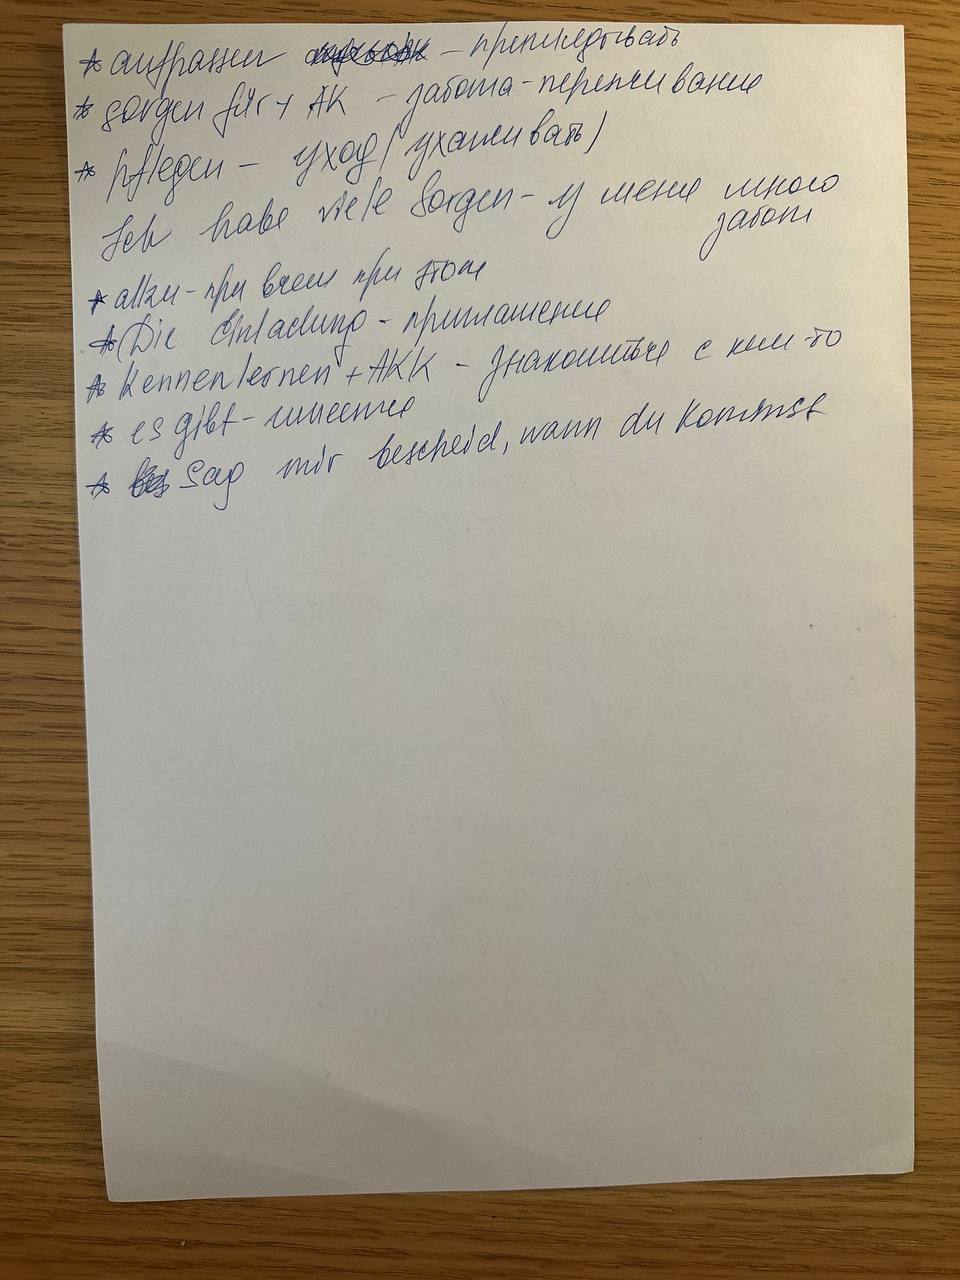 * aufpassen – приглядывать
* sorgen für + AK – забота - переживание
* pflegen – уход (ухаживать)
Ich habe viele Sorgen – у меня много
забот
* – при всем при этом
* (Die Einladung – приглашение
* kennenlernen + AKK – знакомиться с кем-то
* es gibt – имеется
* Sag mir bescheid, wann du kommst